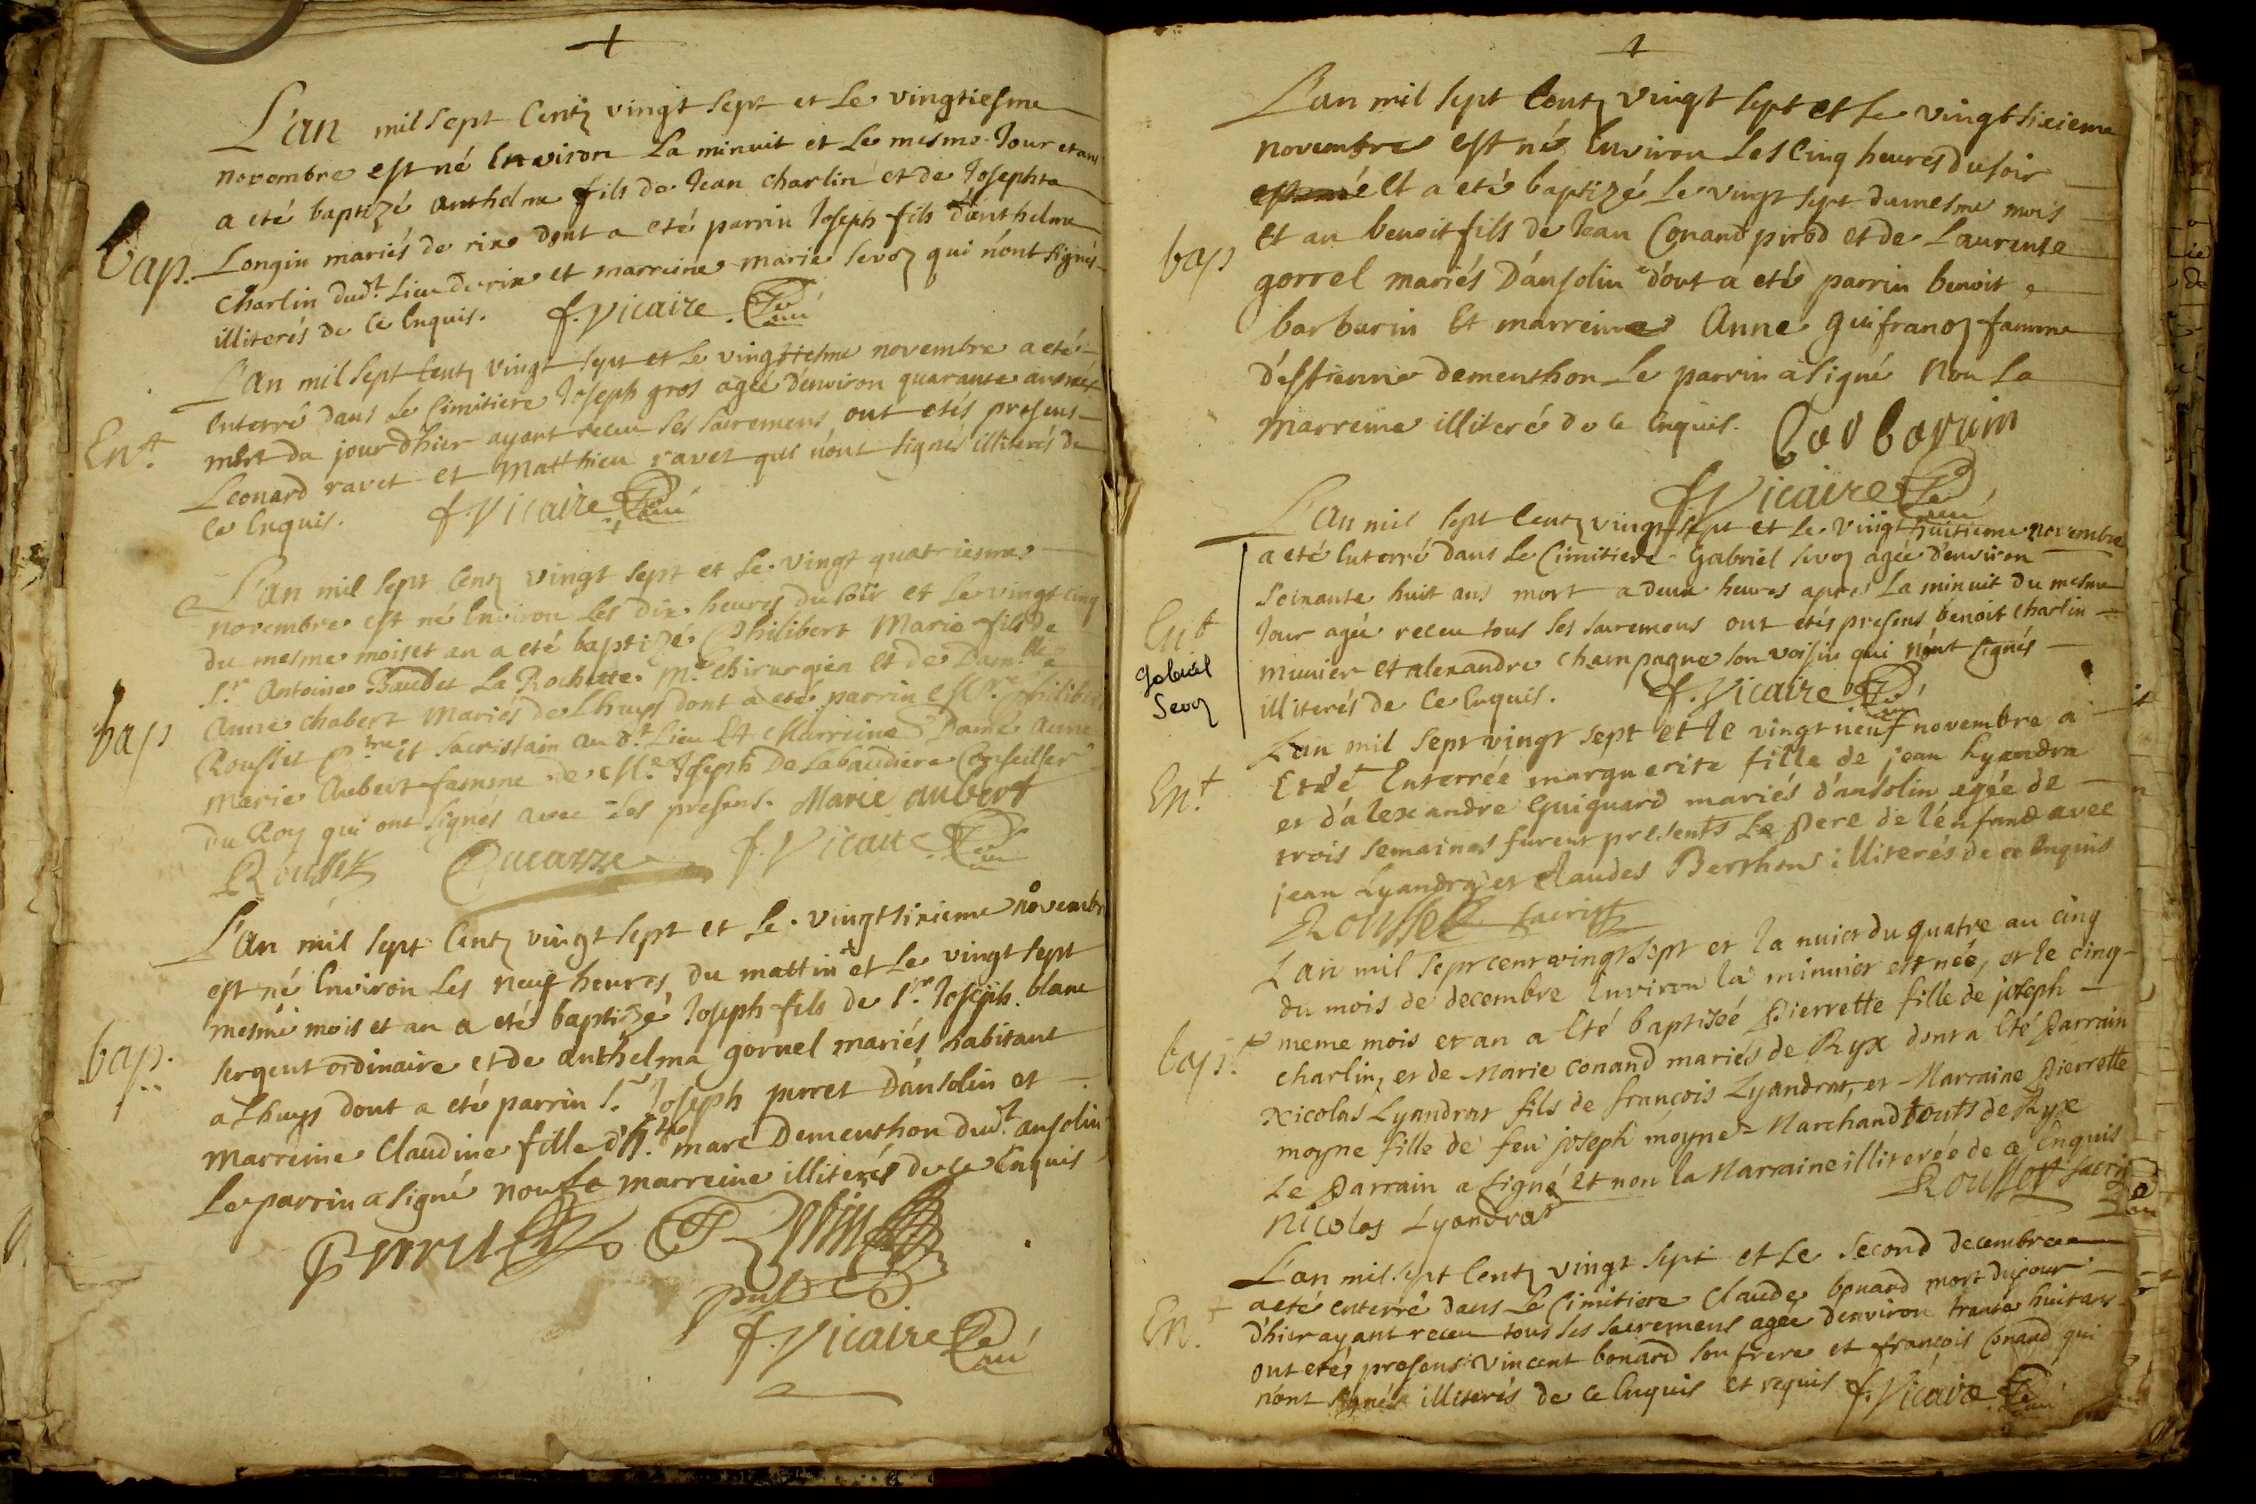 L'an mil sept Centz vingt sept et Le vingtiesme
novembre est né Environ La minuit et Le mesme Jour et an
a eté baptizé anthelme fils de Jean charlin et de Josephta
bap. Longin mariés de rix dont a eté parrin Joseph fils d'anthelme
Charlin dudt. Lieu de rix et marreine marie sevoz qui n'ont signés
illiterés de Ce Enquis. f. Vicaire
L'an mil sept Centz vingt sept et Le vingtiesme novembre a eté
Enterré dans Le Cimitiere Joseph gros agée d'environ quarante
Ent. mort du jour d'hier ayant receu ses sacremens ont etés presens
Leonard ravet et Matthieu ravet qui n'ont signés illiterés de
Ce Enquis. f. Vicaire
L'an mil sept Centz vingt sept et Le vingt quatriesme
novembre est né Environ Les dix heures du soir et Le vingt cinq
du mesme mois et an a eté baptizé Philibert Marie fils de
Sr. Antoine Baudet La Rochette Me. Chirurgien et de Damlle
bap Anne chabert Mariés de Lhuys dont a eté parrin Philibert
Rousset et sacristain au dt. Lieu Et Marreine Dame Anne
Marie Aubert famme de Me. Joseph De Labaudiere Conseiller
du Roy qui ont signés avec les presens. Marie aubert
Rousset Ducarre f. Vicaire
L'an mil sept Centz vingt sept et Le vingt sixieme novembre
est né Environ Les neuf heures du mattin et Le vingt sept
mesme mois et an a eté baptizé Joseph fils de Sr. Joseph blanc
bap. sergent ordinaire et de anthelma gorrel mariés habitant
a Lhuys dont a eté parrin S. Joseph perret D'ansolin et
Marreine Claudine fille d'h. marc Dementhon dudt. ansolin
Le parrin a signé non La marreine illiterés de Ce Enquis
Perret
f. Vicaire
L'an mil sept Centz vingt sept et Le vingt sixieme
novembre est né Environ Les Cinq heures du soir
est né Et a eté baptizé Le vingt sept du mesme mois
bap Et an benoit fils de Jean Conand pirod et de Laurense
gorrel mariés D'ansolin d'ont a eté parrin benoit
barbarin Et marreine Anne guifranoz famme
d'Estienne dementhon Le parrin a signé Non La
Marreine illiteré de Ce Enquis. barbarin
f. Vicaire
L'an mil sept Centz vingt sept et Le vingt huitieme novembre
a eté Enterré dans Le Cimitiere Gabriel sevoz agée d'environ
soixante huit ans mort a deux heures apres La minuit du mesme
Ent Jour agée receu tous ses sacremens ont etés presens benoit charlin
Gabriel
Sevoz
munier et alexandre champagne son voisin qui n'ont signés
illiterés de Ce Enquis. f. Vicaire
L'an mil sept vingt sept et le vingt neuf novembre a
Ent. Etée Enterrée marguerite fille de jean Lyandra
et d'alexandre Guiguard mariés d'ansolin egée de
trois semaines furent presents Le Pere de l'énfand avec
jean Lyandra et Claudes Berthon illiterés de ce Enquis
Rousset sacrist
L'an mil sept cent vingt sept et la nuict du quatre au cinq
du mois de decembre Environ la minuict est née, et le cinq
bap. meme mois et an a Eté baptisée Pierrette fille de joseph
charlin, et de Marie conand mariés de Ryx dont a Eté Parrain
Nicolas Lyandrat fils de françois Lyandrat, et Marraine Pierrette
moyne fille de feu joseph moyne Marchand touts de Ryx
Le Parrain a signé Et non la Marraine illiterée de ce Enquis
Nicolas Lyandrat Rousset sacrist
L'an mil sept Centz vingt sept et Le second decembre
a eté enterré dans Le Cimitiere Claude bonard mort du jour
Ent. d'hier ayant receu tous ses sacremens agée d'environ trante huit ans
ont etés presens Vincent bonard son frere et françois Conand qui
n'ont signés illiterés de Ce Enquis et requis f. Vicaire